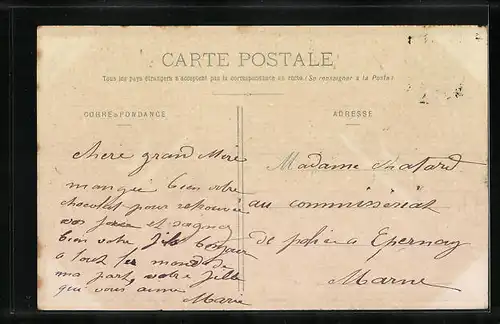 CARTE POSTALE
Tous les pays étrangers n'acceptent pas la correspondance au verso (Se renseigner à la Poste)
CORRESPONDANCE
ADRESSE
chère grand Mère
mangé bien votre
chocolat pour retrouvé
vos force et soignez
bien votre fils Bonjour
a tout le monde de
ma part votre fille
qui vous aime
Marie
Madame chatard
au commisseriat
de police a Epernay
Marne